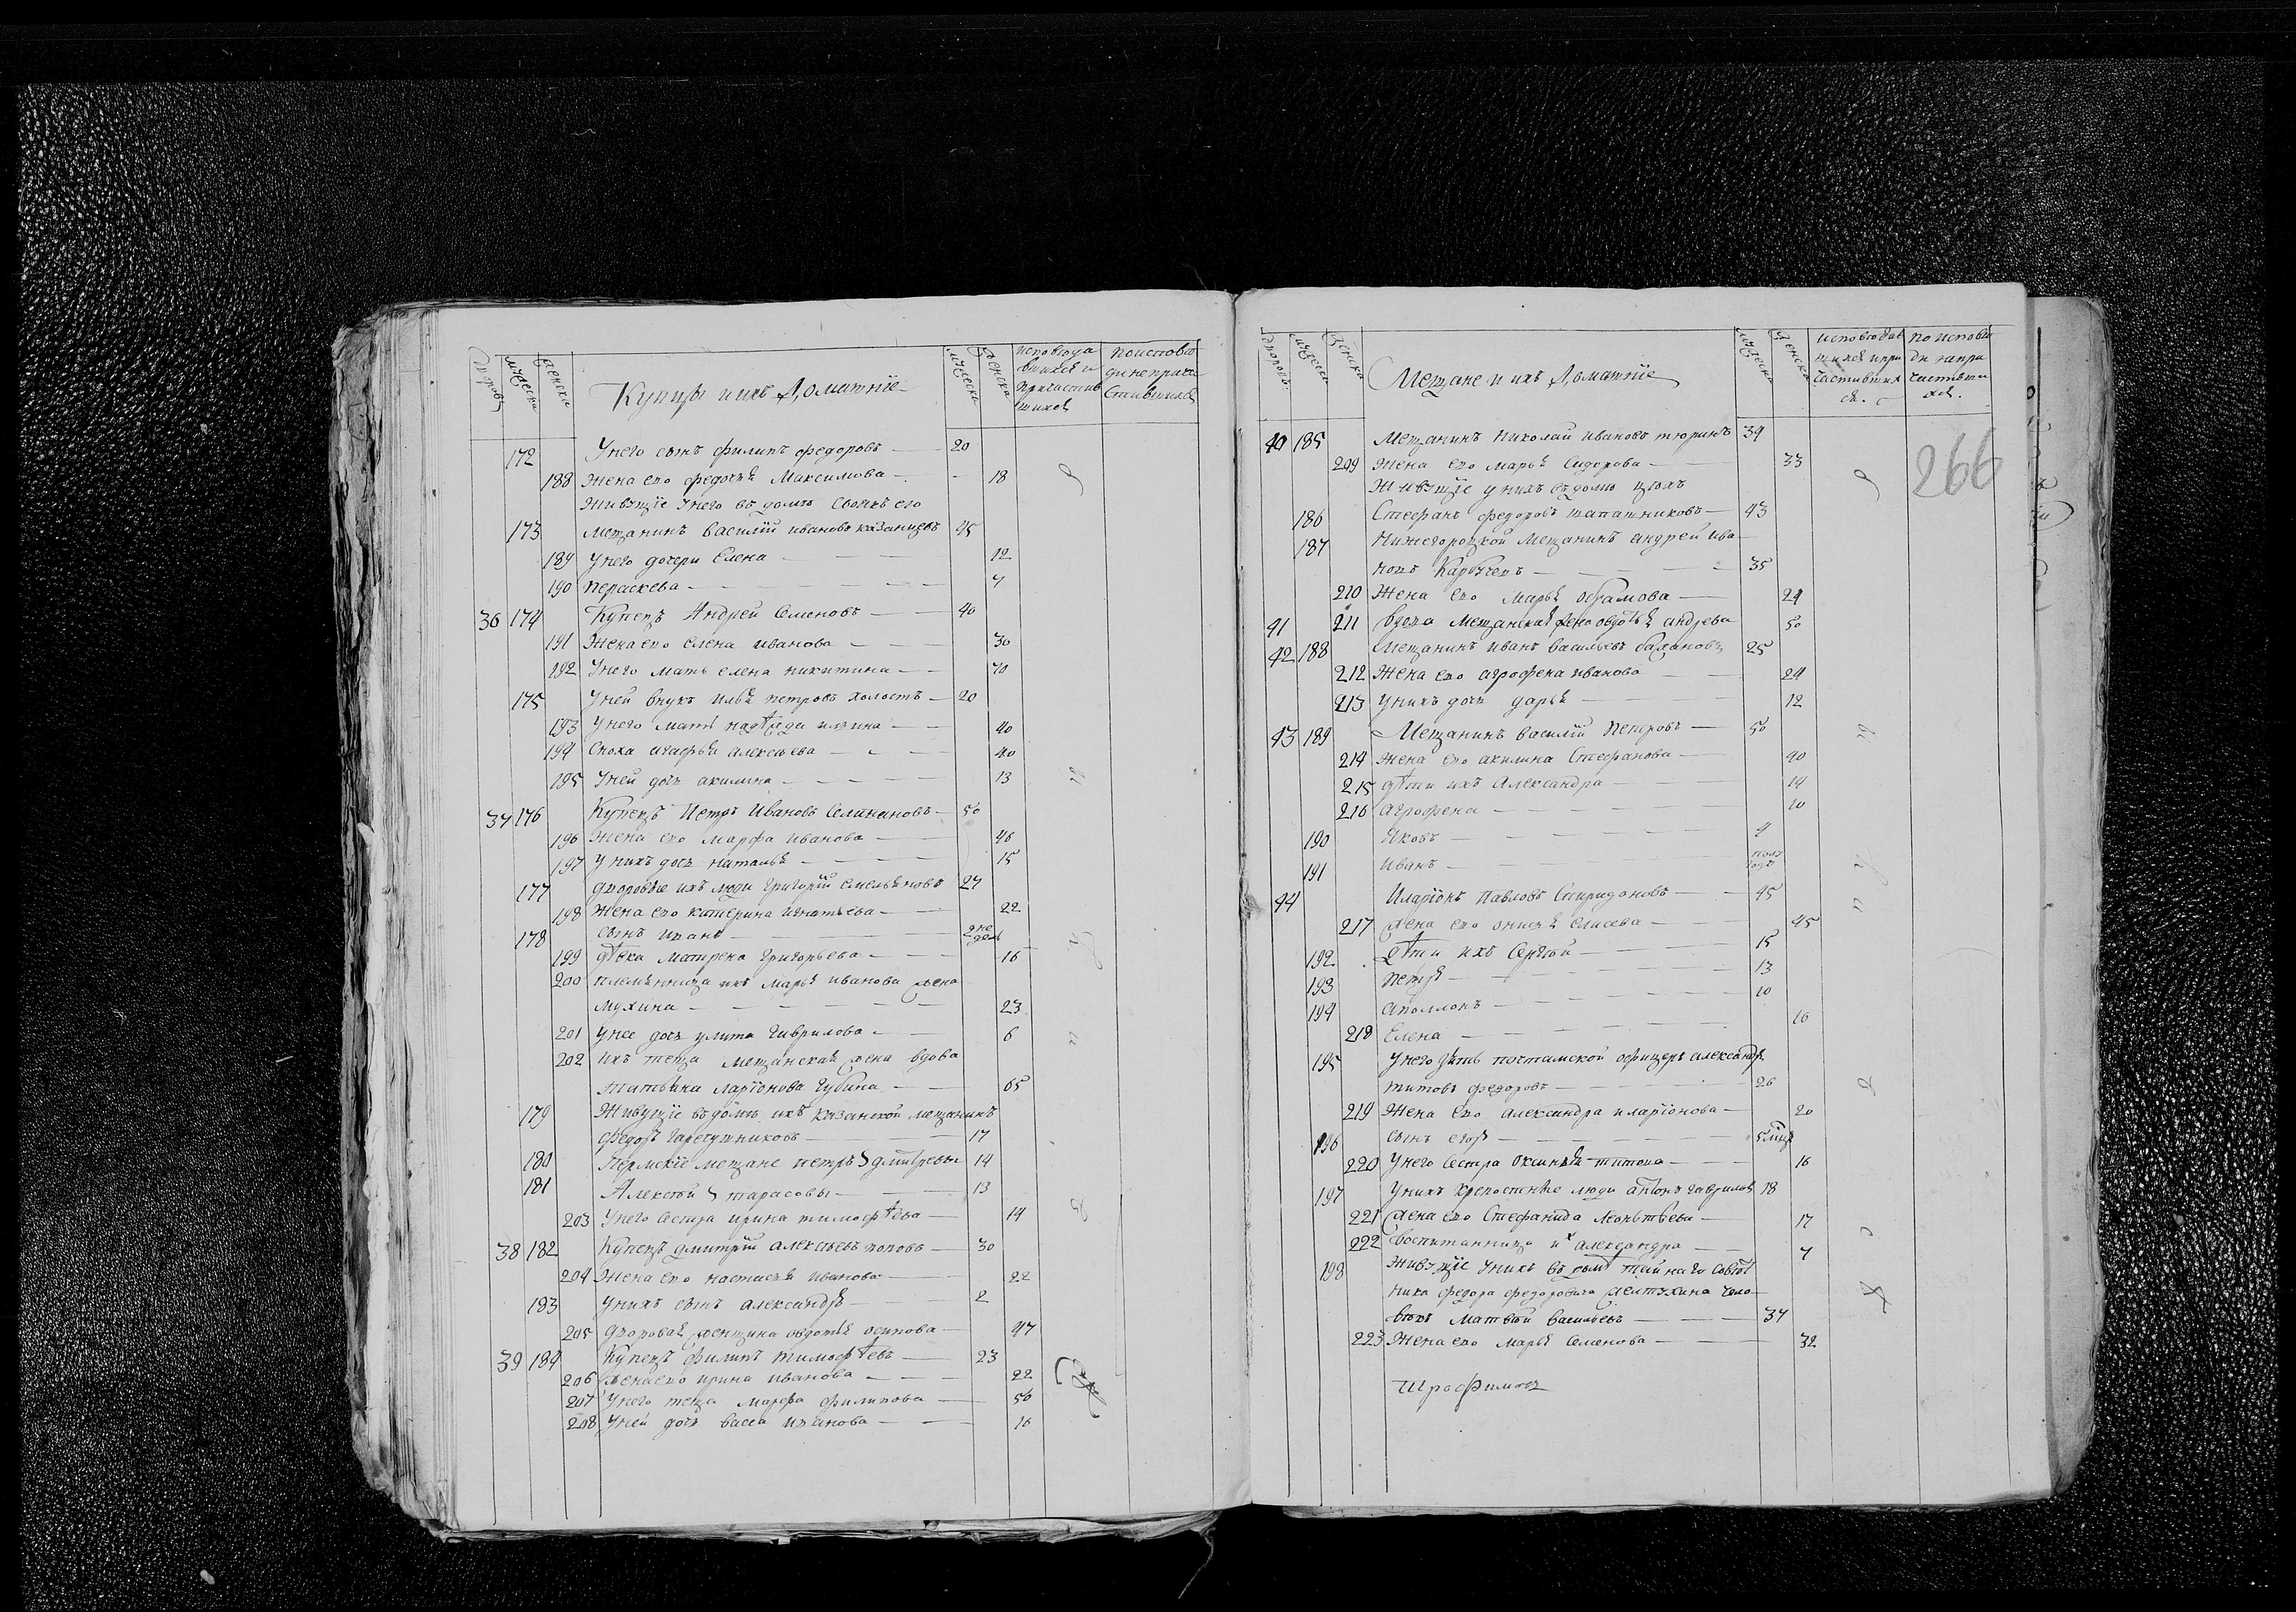 дворовъ мужеска женска Купцы и ихъ домашнїе мужеска женска исповѣдавшихся и причастившихся поисповѣди непричастившихся
172 Унего сынъ филипъ федоровъ 20
188 Жена его федосья Максимова 18
Живущїе унего въ домѣ своякъ его
173 мещанинъ василїй ивановъ казанцевъ 45
189 Унего дочери Елена 12
190 пераскева 7
36 174 Купецъ Андрей Семеновъ 40
191 Жена его елена иванова 30
192 Унего мать елена никитина 70
175 Уней внукъ илья петровъ холостъ 20
193 Унего мать 40
194 Сноха алексѣева 40
195 Уней дочь акилина 13
37 176 Купецъ Петръ Ивановъ 50
196 Жена его марфа иванова 46
197 Унихъ дочь наталья 15
177 дворовые ихъ люди григорїй емельяновъ 27
198 Жена его катерина игнатьева 22
178 сынъ иванъ 2 недел
199 дѣвка матрена григорьева 16
200 племянница ихъ марья иванова жена
мухина 23
201 унее дочь улита гаврилова 6
202 ихъ теща мещанская жена вдова
татьяна ларїонова губина 65
179 Живущїе въ домѣ ихъ казанской мещанинъ
федоръ 17
180 Пермскїе мещане петръ дмитревы 14
181 Алексѣй тарасовы 13
203 Унего сестра ирина тимофѣева 14
38 182 Купецъ дмитрїй алексѣевъ поповъ 30
204 Жена его настасья иванова 22
183 Унихъ сынъ александръ 2
205 дворовая женщина овдотья осипова 47
39 184 Купецъ филипъ тимофѣевъ 23
206 жена его ирина иванова 22
207 Унего теща марфа филипова 50
208 Уней дочь васса иванова 16
дворовъ мужеска женска Мещане и ихъ домашнїе мужеска женска исповѣдавшихся и причастившихся по исповѣди не причастившихся
40 185 Мещанинъ николай ивановъ тюринъ 39
209 Жена его марья сидорова 33
266
Живущїе унихъ въ домѣ цѣхъ
186 Стефанъ федоровъ шапашниковъ 43
187 Нижегороцкой мещанинъ андрей ива
новъ 35
210 Жена его марья абрамова 24
41 211 вдова мещанская жена овдотья андреева 50
42 188 Мещанинъ иванъ васильевъ 25
212 Жена его агрофена иванова 24
213 Унихъ дочь дарья 12
43 189 Мещанинъ василїй петровъ 50
214 Жена его акилина стефанова 40
215 дѣти ихъ александра 14
216 агрофена 10
190 Яковъ 4
191 Иванъ полгода
44 Иларїонъ павловъ спиридоновъ 45
217 жена его анисья елисева 45
192 дѣти ихъ сергѣй 15
193 петръ 13
194 аполлонъ 10
218 Елена 16
195 Унего зять почтамской офицеръ александръ
титовъ федоровъ 26
219 Жена его александра иларїонова 20
196 сынъ егоръ 5 мцъ
220 Унего сестра оксинья титова 16
197 Унихъ крепостные люди антонъ гавриловъ 18
221 жена его стефанида леонтьева 17
222 воспитанница ихъ александра 7
198 Живущїе унихъ въ домѣ тайнаго совѣт
ника федора федоровича желтухина чело
вѣкъ матвѣй васильевъ 37
223 Жена его марья семенова 32